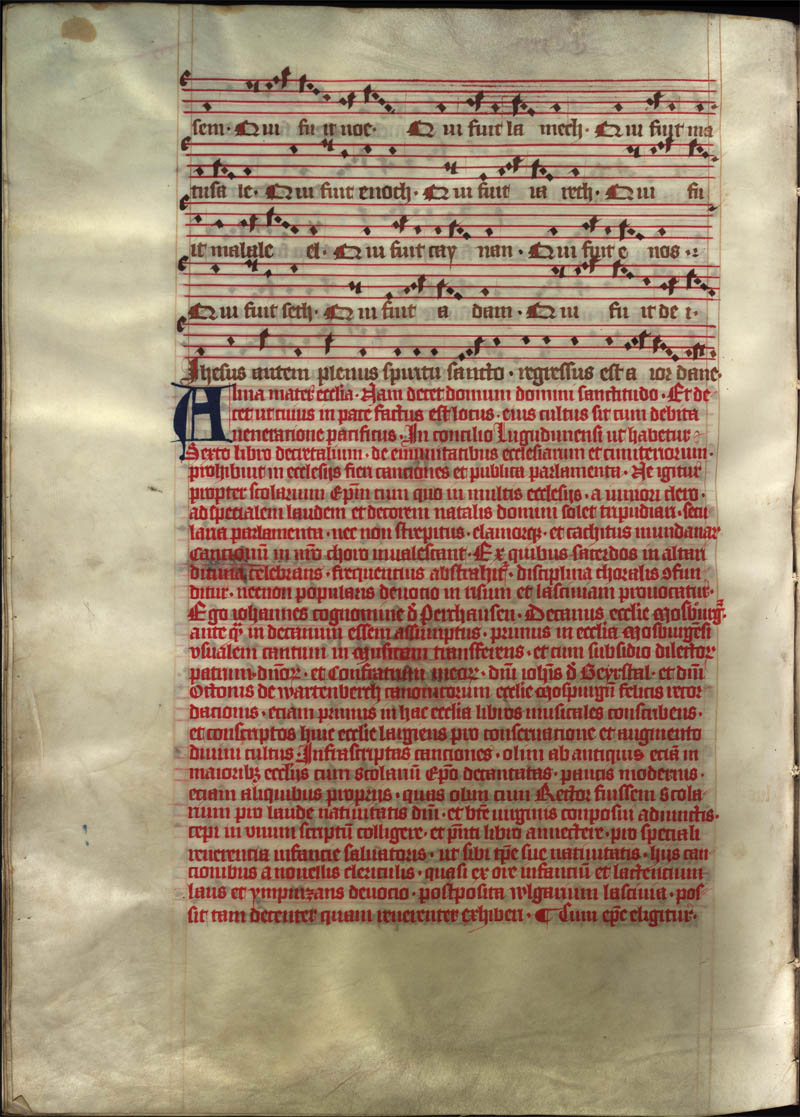 sem · Qui fu it noe · Qui fuit la mech · Qui fuit ma
tusa le · Qui fuit enoch · Qui fuit ia rech · Qui fu
it malale el · Qui fuit cay nan · Qui fuit e nos
Qui fuit seth · Qui fuit a dam · Qui fu it de i ·
Jhesus autem plenus spiritu sancto · regressus est a ior dane ·
Alma mater ecclia · Nam decet domum domini sanctitudo · Et de
cet ut cuius in pace factus est locus · eius cultus sit cum debita
ueneratione pacificus · In concilio Lugdunensi ut habetur
Sexto libro decretalium · de emunitatibus ecclesiarum et cimiteriorum ·
prohibuit in ecclesijs fieri canciones et publica parlamenta · Ne igitur
propter scolarium Ep̄m cum quo in multis ecclesijs · a iuniori clero ·
ad specialem laudem et decorem natalis domini solet tripudiari · secu
laria parlamenta · nec non strepitus · clamorq̄ꝫ · et cachitus mundanaꝝ
cancionū in nr̄o choro inualescant · Ex quibus sacerdos in altari
diuina celebrans · frequentius abstrahit̄ · disciplina choralis ꝯfun
ditur · necnon popularis deuocio in risum et lasciuiam prouocatur ·
Ego iohannes cognomine d̄ Perchausen · Decanus ecclie Mosburgn̄ ·
ante q̄ꝫ in decanum essem assumptus · primus in ecclia Mosburgēsi
vsualem cantum in musicam transferens · et cum subsidio dilectoꝝ
patrum · dn̄oꝝ · et Confratrum meoꝝ · dn̄i ioh̄is d̄ Geyrstal · et dn̄i
Ottonis de wartenberch canonicorum ecclie Mospurgn̄ felicis recor
dacionis · eciam primus in hac ecclia libros musicales conscribens ·
et conscriptos huic ecclie largiens pro conseruatione et augmento
diuini cultus · Infrascriptas canciones · olim ab antiquis eciā in
maioribꝫ eccl̄ijs cum scolariū Ep̄o decantatas · paucis modernis ·
eciam aliquibus proprijs · quas olim cum Rector fuissem scola
rium pro laude natiuitatis dn̄i · et btē uirginis conposui adiunctis ·
cepi in vnum scriptū colligere · et p̄nti libro annectere · pro speciali
reuerentia infancie saluatoris · ut sibi tp̄e sue natiuitatis · hijs can
cionibus a nouellis clericulis · quasi ex ore infanciū et lactencium
laus et ympnizans deuocio · postposita wlgarium lasciuia · pos
sit tam decenter quam reuerenter exhiberi · ¶ Cum ep̄c eligitur ·